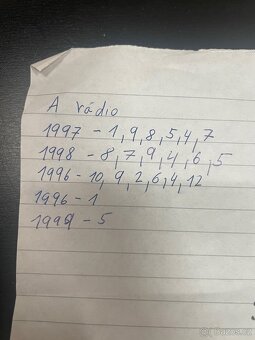 A rádio
1997 - 1,9,8,5,4,7
1998 - 8,7,9,4,6,5
1996 - 10,9,2,6,4,12
1996 - 1
1999 - 5